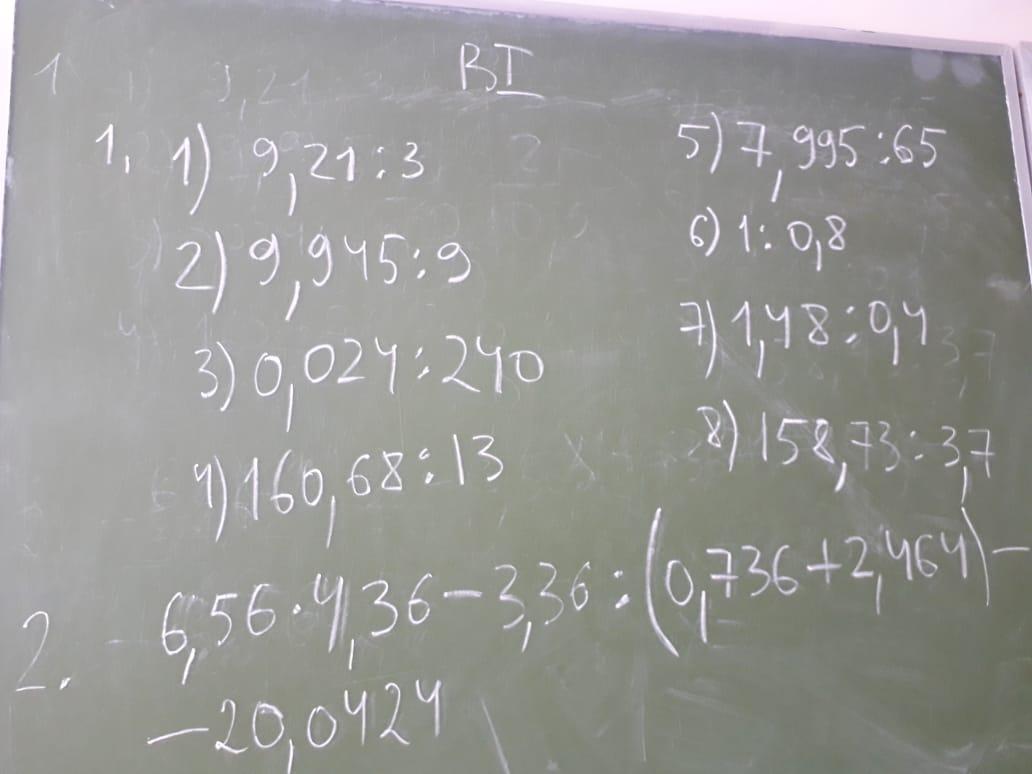 ВI
1. 1) 9,21:3
2) 9,945:9
3) 0,024:240
4) 160,68:13
5) 7,995:65
6) 1:0,8
7) 1,48:0,4
8) 158,73:3,7
2. 6,56·4,36-3,36:(0,736+2,464)-
-20,0424